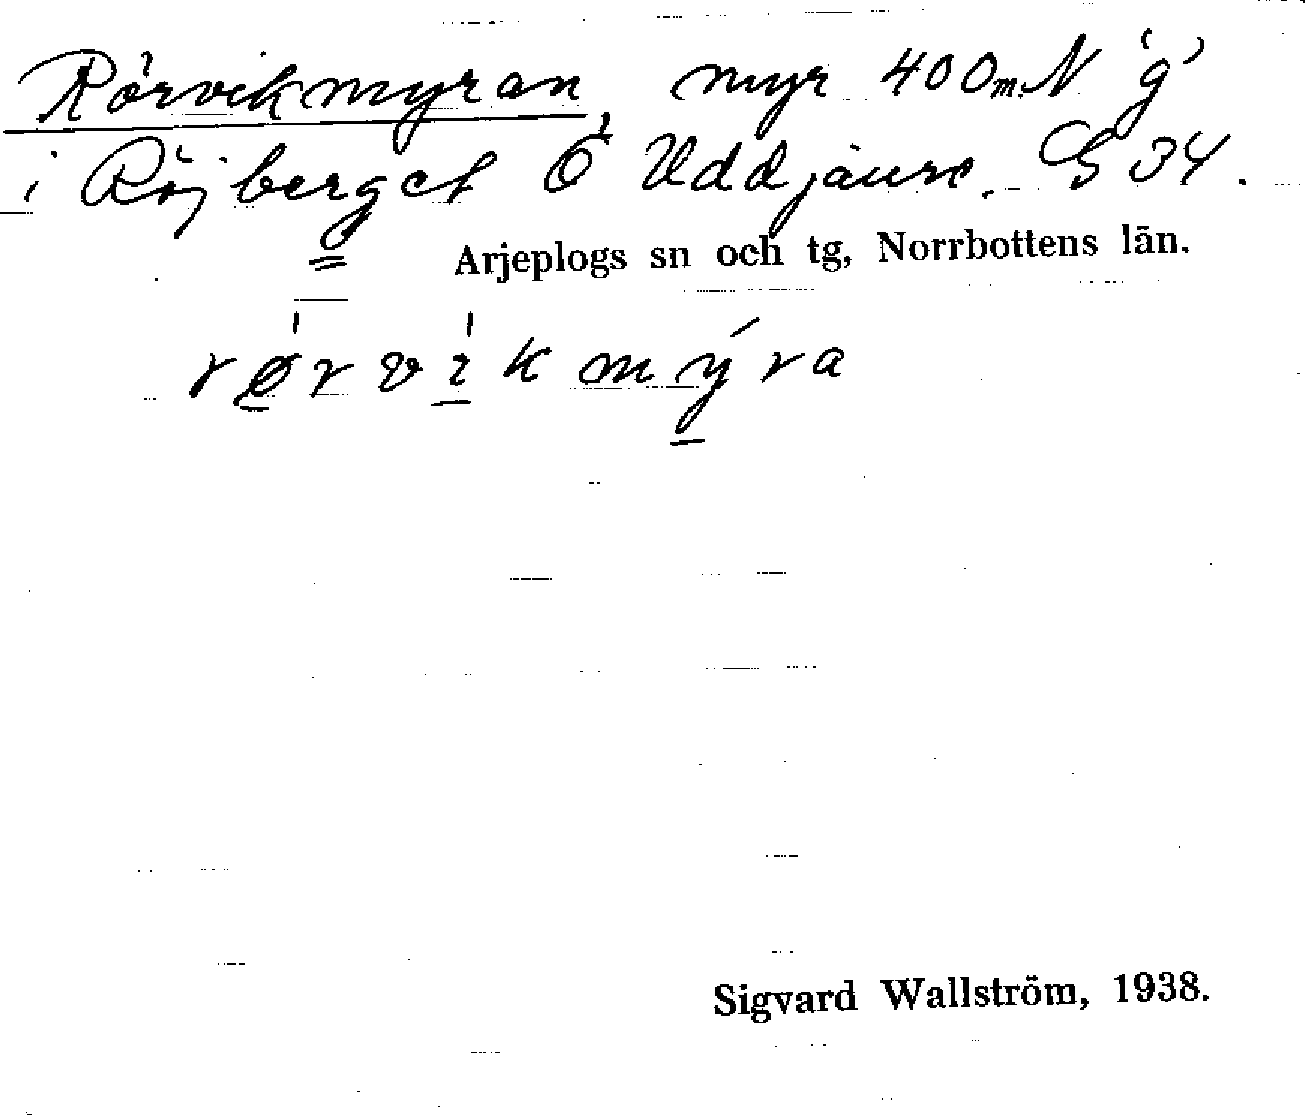 Rörvikmyran, myr 400 m. N 'g'
i Röjberget Ö Uddjaure. G 34.
Arjeplogs sn och tg, Norrbottens län.
rø̱rvi̱kmý̱ra
Sigvard Wallström, 1938.